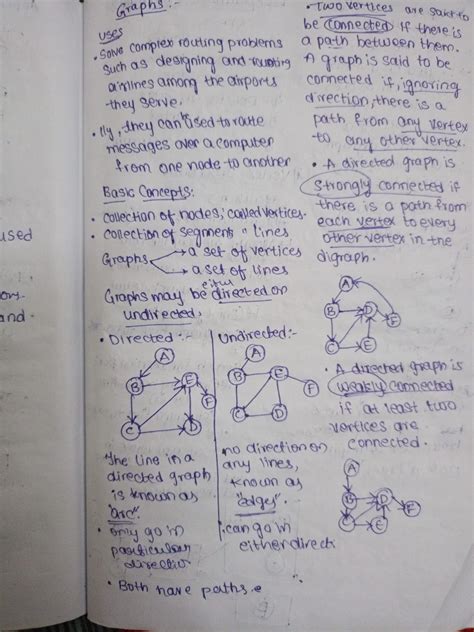 Graphs :-
uses
• Solve complex routing problems
such as designing and routing
airlines among the airports
they serve.
• lly, they can used to route
messages over a computer
from one node to another
Basic Concepts:
• collection of nodes, called vertices.
• collection of segments " lines
Graphs → a set of vertices
→ a set of lines
Graphs may be either directed or
undirected.
• Directed :-
A
B
E
F
C
D
The line in a
directed graph
is known as
"arc".
• only go in
particular
directio
Undirected:-
A
B
E
F
C
D
no direction on
any lines,
known as
"edges".
• can go in
either directi
• Both have paths.
• Two vertices are said to
be connected if there is
a path between them.
A graph is said to be
connected if, ignoring
direction, there is a
path from any vertex
to any other vertex.
• A directed graph is
strongly connected if
there is a path from
each vertex to every
other vertex in the
digraph.
A
B
D
F
C
E
• A directed graph is
weakly connected
if at least two
vertices are
connected.
A
B
D
F
C
E
used
and